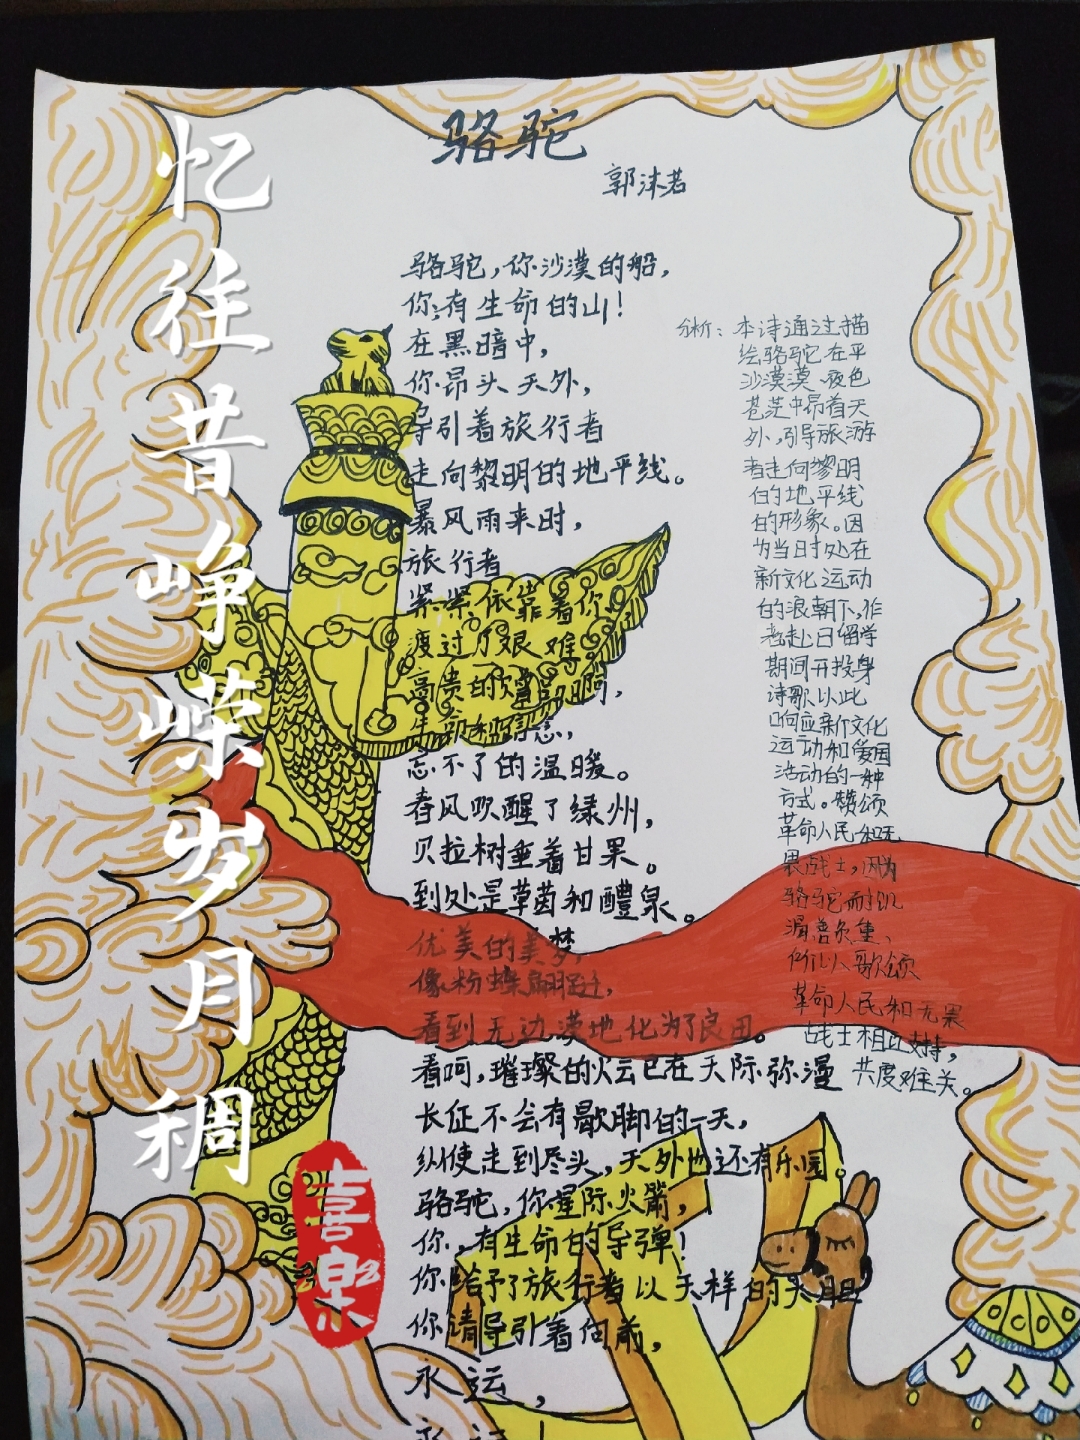 忆往昔峥嵘岁月稠
喜乐
骆驼
郭沫若
骆驼，你沙漠的船，
你，有生命的山！
在黑暗中，
你昂头天外，
导引着旅行者
走向黎明的地平线。
暴风雨来时，
旅行者
紧紧依靠着你
渡过了艰难。
高贵的赠品呵，
忘不了的温暖。
春风吹醒了绿州，
贝拉树垂着甘果。
到处是草茵和醴泉。
优美的美梦，
像粉蝶翩跹，
看到无边漠地化为了良田。
看呵，璀璨的火云已在天际弥漫
长征不会有歇脚的一天，
纵使走到尽头，天外也还有乐园。
骆驼，你星际火箭，
你，有生命的导弹！
你给予了旅行者以天样的大胆
你请导引着向前，
永远，
分析：本诗通过描
绘骆驼在平
沙漠漠、夜色
苍茫中昂首天
外，引导旅游
者走向黎明
的地平线
的形象。因
为当时处在
新文化运动
的浪潮下，作
者赴日留学
期间开投身
诗歌以此
响应新文化
运动和爱国
活动的一种
方式。赞颂
革命人民和无
畏战士，因为
骆驼耐饥
渴善负重、
所以歌颂
革命人民和无畏
战士相互支持，
共度难关。